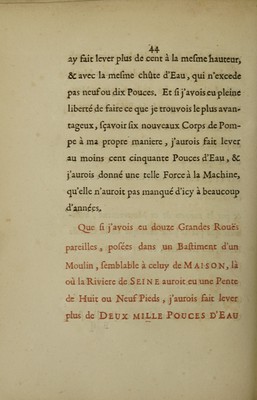 44
ay fait lever plus de cent à la mesme hauteur,
& avec la mesme chûte d'Eau, qui n'excede
pas neuf ou dix Pouces. Et si j'avois eu pleine
liberté de faire ce que je trouvois le plus avan-
tageux, sçavoir six nouveaux Corps de Pom-
pe à ma propre maniere, j'aurois fait lever
au moins cent cinquante Pouces d'Eau, &
j'aurois donné une telle Force à la Machine,
qu'elle n'auroit pas manqué d'icy à beaucoup
d'années.
Que si j'avois eu douze Grandes Rouës
pareilles, posées dans un Bastiment d'un
Moulin, semblable à celuy de MAISON, là
où la Riviere de SEINE auroit eu une Pente
de Huit ou Neuf Pieds, j'aurois fait lever
plus de DEUX MILLE POUCES D'EAU